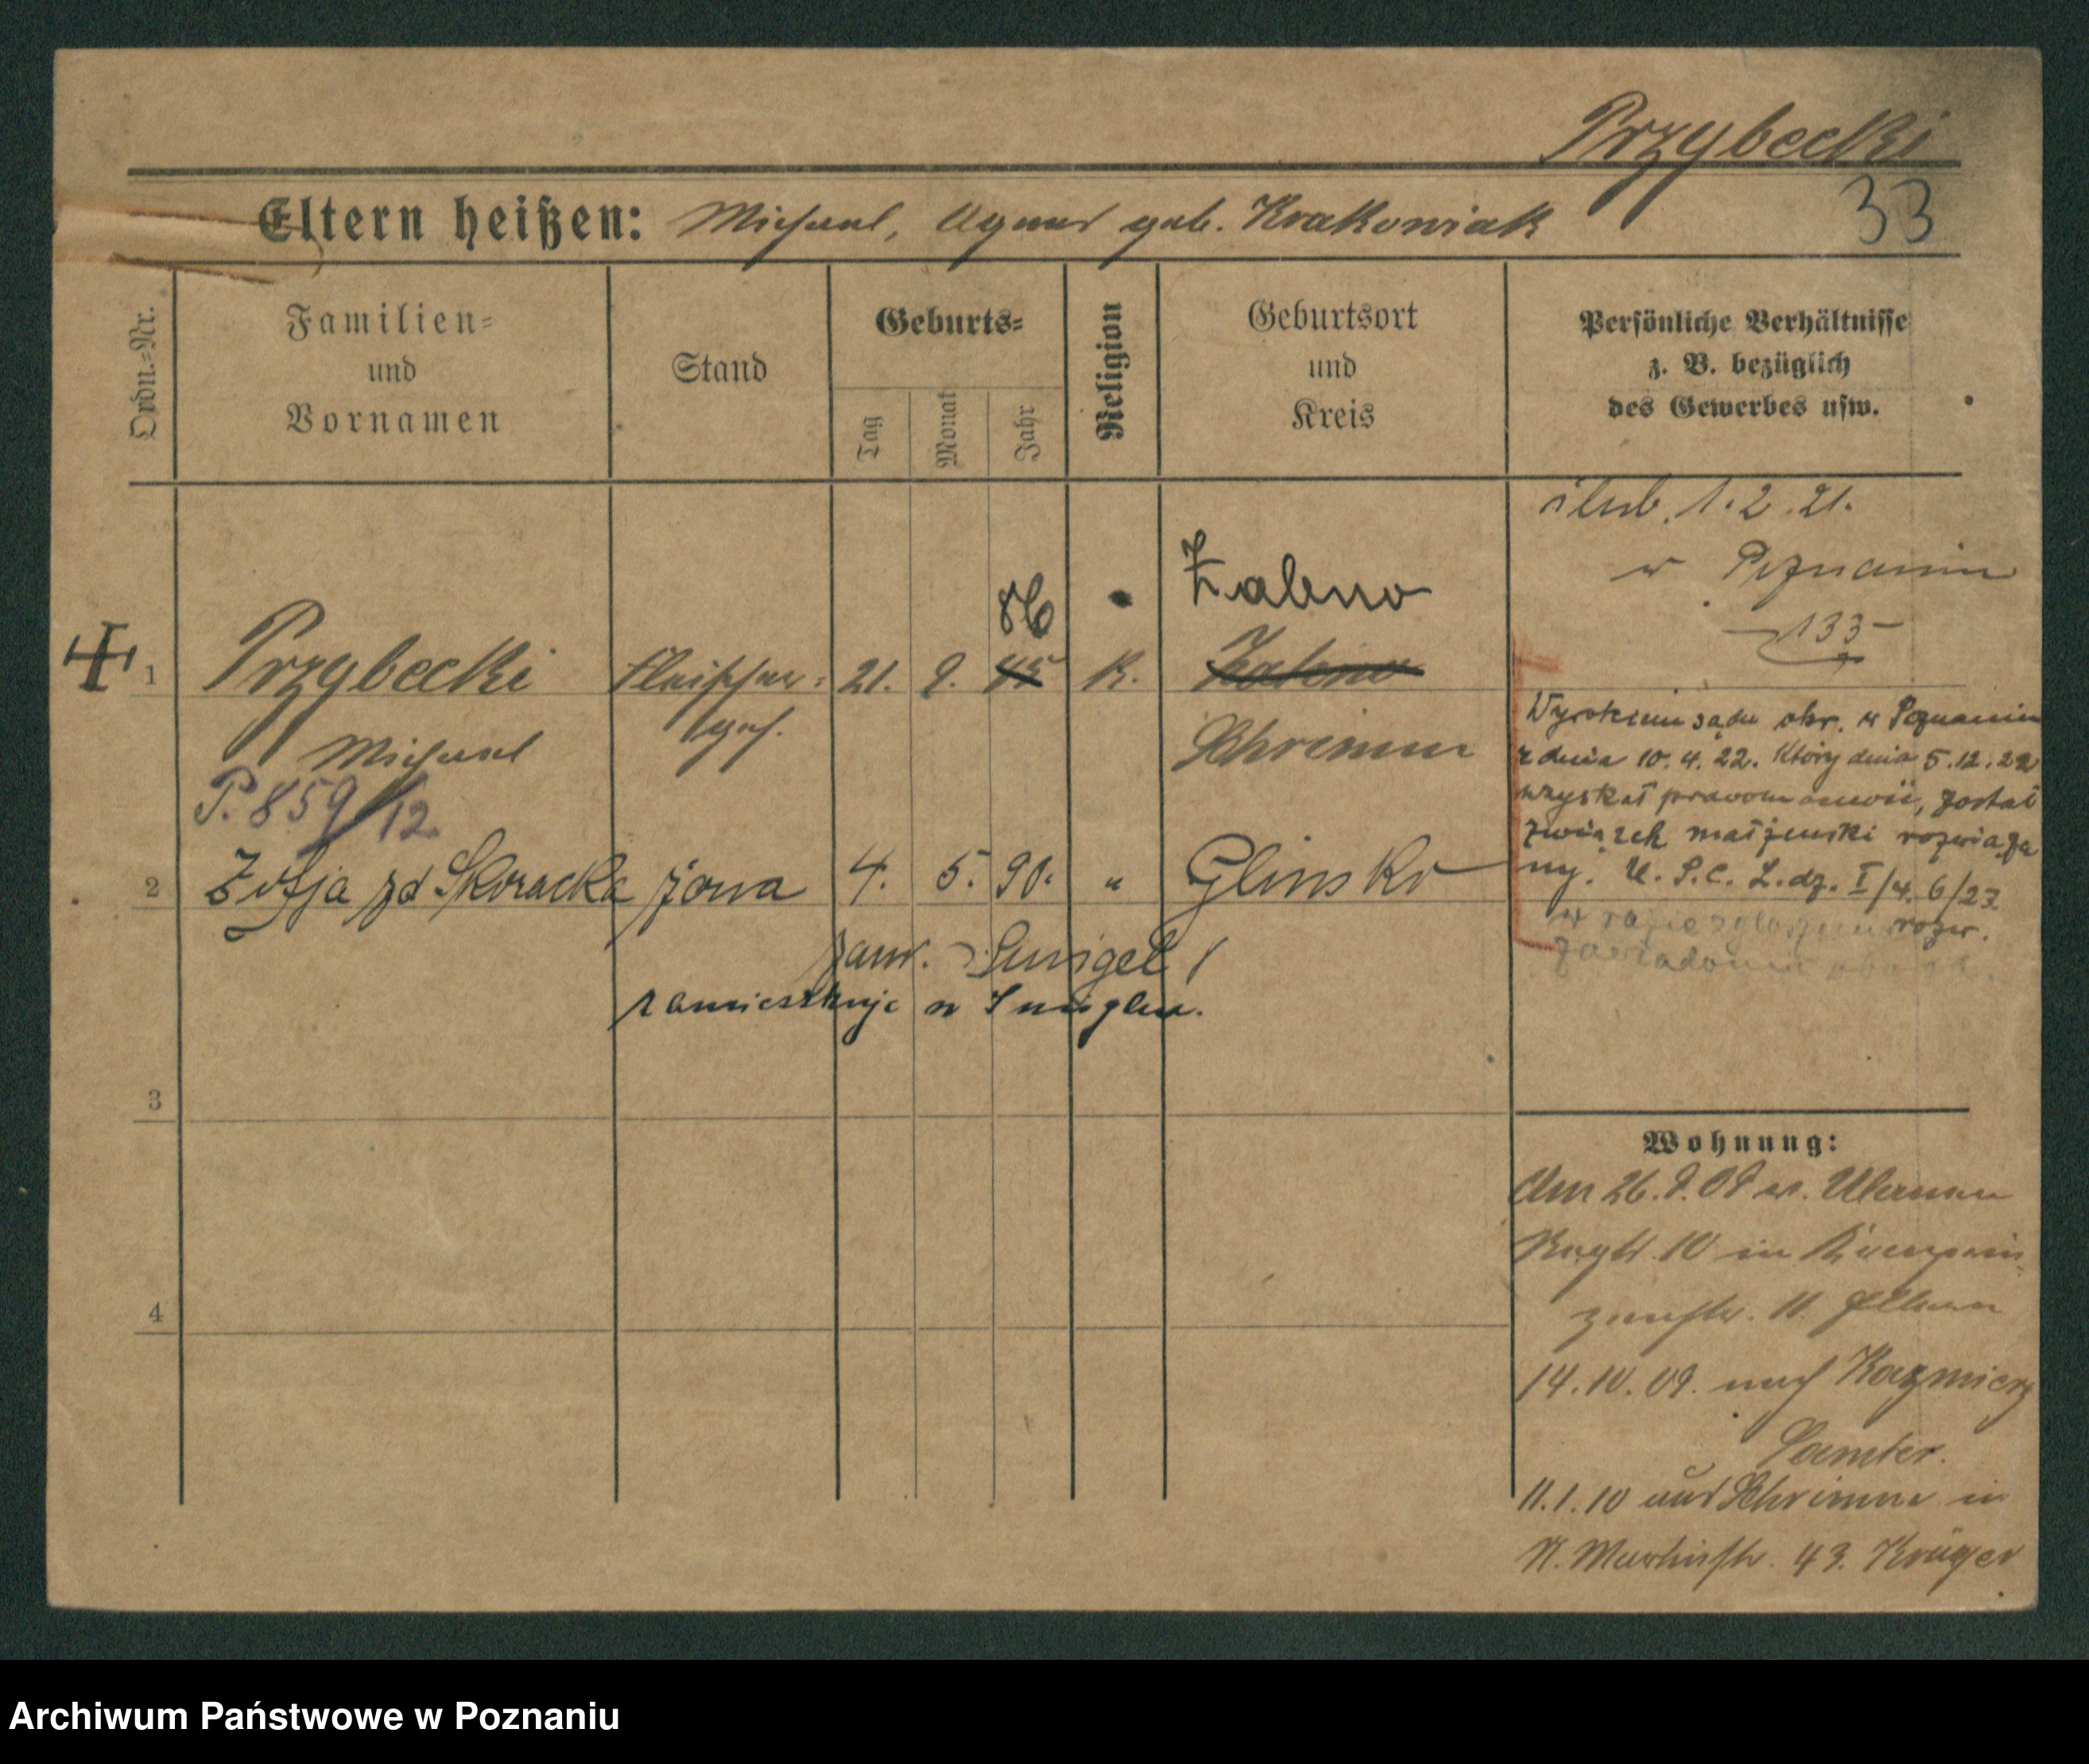 Przybecki
33
Eltern heißen: Michael, Agnes geb. Krakowiak
Ordn.=Nr.
Familien=
und
Vornamen
Stand
Geburts=
Tag
Monat
Jahr
Religion
Geburtsort
und
Kreis
Persönliche Verhältnisse
z. B. bezüglich
des Gewerbes usw.
ślub. 1.2.21.
w Poznaniu
133
1 Przybecki Fleischer= 21. 9. 86 K. Żabno
Michael ges. Schrimm
P. 859/12
Wyrokiem sądu okr. w Poznaniu
z dnia 10.4.22. który dnia 5.12.22
uzyskał prawomocność, został
związek małżeński rozwiąza
ny. U.S.C. L.dz. I/4. 6/23.
w razie zgłoszenia rozw.
2 Zofja zd Skoracka żona 4. 5. 90. " Glinsko
zam. Śmigel
zamieszkuje w Śmiglu.
3
4
Wohnung:
Am 26.9.09 v. Ulanen
Regt. 10 in
14.10.09. nach Kazmierz
Samter.
11.1.10 aus Schrimm in
St. Martinstr. 43. Krüger
Archiwum Państwowe w Poznaniu